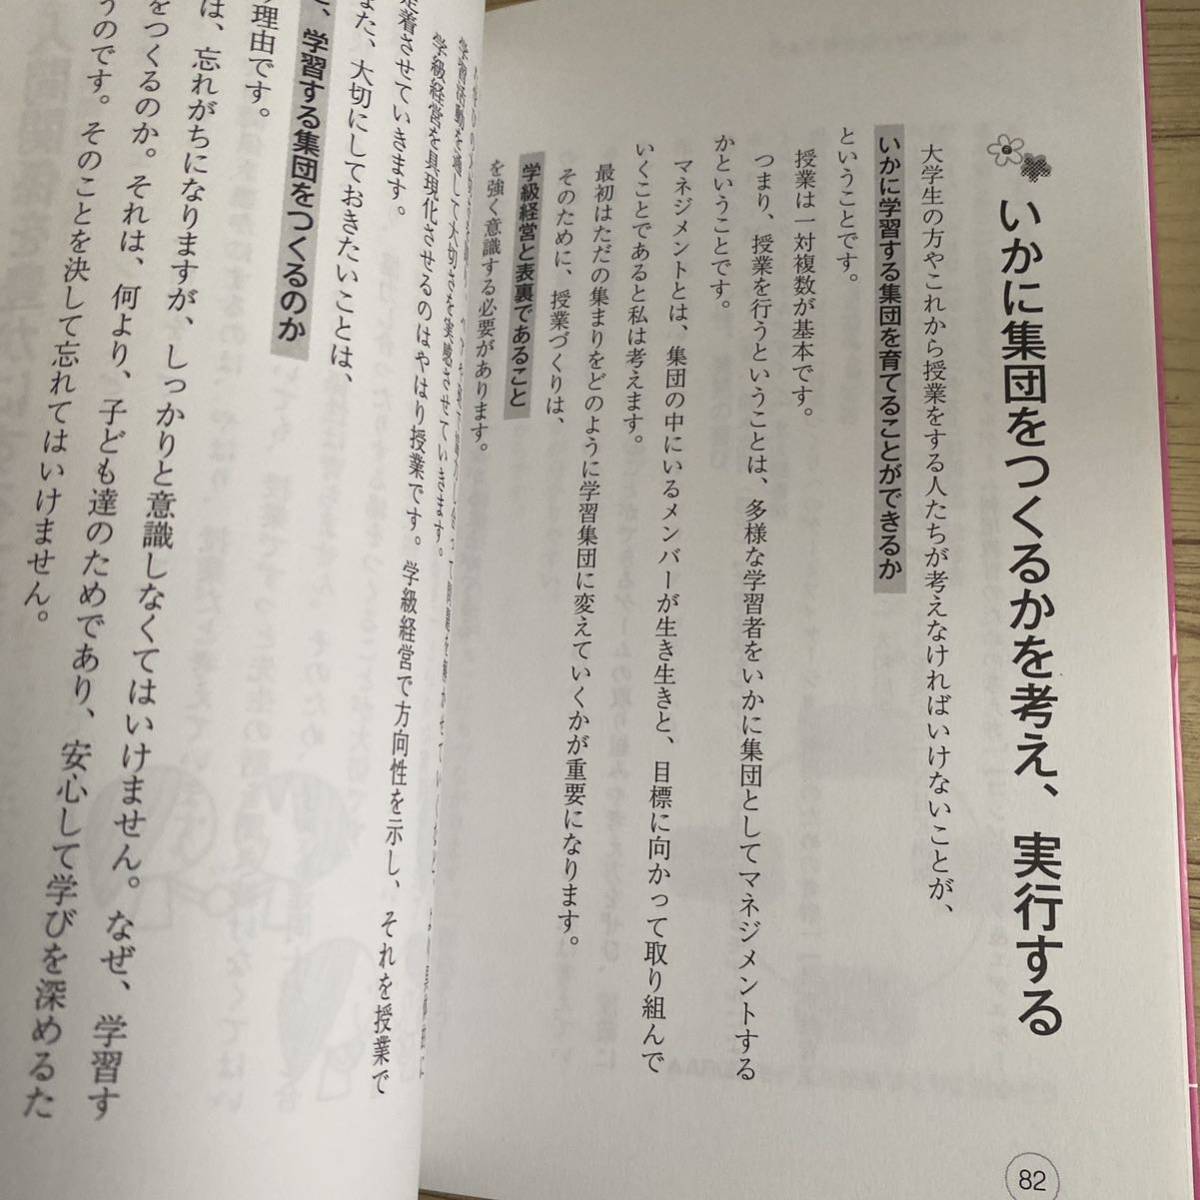 いかに集団をつくるかを考え、実行する
大学生の方やこれから授業をする人たちが考えなければいけないことが、
いかに学習する集団を育てることができるか
ということです。
授業は一対複数が基本です。
つまり、授業を行うということは、多様な学習者をいかに集団としてマネジメントする
かということです。
マネジメントとは、集団の中にいるメンバーが生き生きと、目標に向かって取り組んで
いくことであると私は考えます。
最初はただの集まりをどのように学習集団に変えていくかが重要になります。
そのために、授業づくりは、
学級経営と表裏であること
を強く意識する必要があります。
学習活動を通して大切さを実感させていきます。
学級経営を具現化させるのはやはり授業です。学級経営で方向性を示し、それを授業で
定着させていきます。
また、大切にしておきたいことは、
、学習する集団をつくるのか
理由です。
は、忘れがちになりますが、しっかりと意識しなくてはいけません。なぜ、学習す
をつくるのか。それは、何より、子ども達のためであり、安心して学びを深めるた
うのです。そのことを決して忘れてはいけません。
82